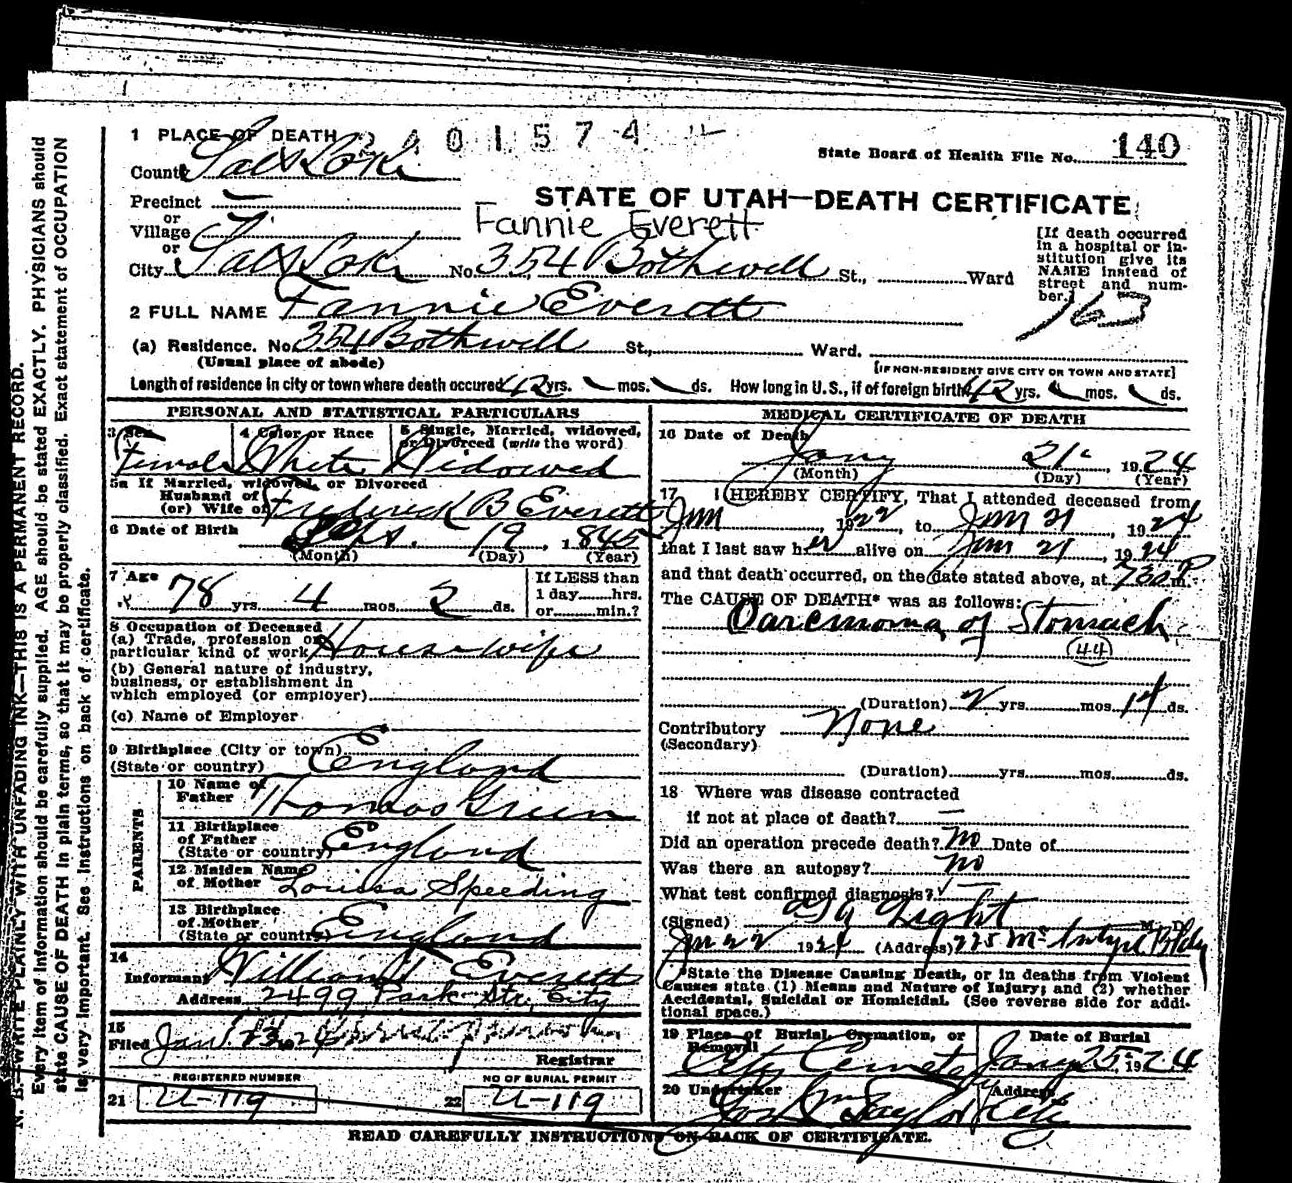 N. B.—WRITE PLAINLY WITH UNFADING INK—THIS IS A PERMANENT RECORD.
Every item of information should be carefully supplied. AGE should be stated EXACTLY. PHYSICIANS should
state CAUSE OF DEATH in plain terms, so that it may be properly classified. Exact statement of OCCUPATION
is very important. See instructions on back of certificate.
1 PLACE OF DEATH 2401574
State Board of Health File No. 140
County Salt Lake
STATE OF UTAH—DEATH CERTIFICATE
Precinct —
or
Village
Fannie Everett
or
City Salt Lake No. 354 Bothwell St., Ward
[If death occurred
in a hospital or in-
stitution give its
NAME instead of
street and num-
ber.]
163
2 FULL NAME Fannie Everett
(a) Residence. No. 354 Bothwell St., Ward.
(Usual place of abode)
[IF NON-RESIDENT GIVE CITY OR TOWN AND STATE]
Length of residence in city or town where death occured 42 yrs. mos. ds. How long in U.S., if of foreign birth? 42 yrs. mos. ds.
PERSONAL AND STATISTICAL PARTICULARS
3 Sex 4 Color or Race 5 Single, Married, widowed,
or Divorced (write the word)
Female White Widowed
5a If Married, widowed, or Divorced
Husband of
(or) Wife of Frederick B Everett
6 Date of Birth Sept. 19, 1845
(Month) (Day) (Year)
7 Age
78 yrs. 4 mos. 2 ds.
If LESS than
1 day hrs.
or min.?
8 Occupation of Deceased
(a) Trade, profession or
particular kind of work Housewife
(b) General nature of industry,
business, or establishment in
which employed (or employer)
(c) Name of Employer
9 Birthplace (City or town)
(State or country) England
PARENTS
10 Name of
Father Thomas Green
11 Birthplace
of Father
(State or country) England
12 Maiden Name
of Mother Louisa Speeding
13 Birthplace
of Mother
(State or country) England
14
Informant William Everett
Address 2499 Park Str, City
15
Filed Jan 23 1924
Registrar
REGISTERED NUMBER NO OF BURIAL PERMIT
21 U-119 22 U-119
MEDICAL CERTIFICATE OF DEATH
16 Date of Death
Jany 21, 1924
(Month) (Day) (Year)
17 I HEREBY CERTIFY, That I attended deceased from
Jan, 1922, to Jan 21 1924
that I last saw her alive on Jan 21, 1924
and that death occurred, on the date stated above, at 730 P m.
The CAUSE OF DEATH* was as follows:
Carcinoma of Stomach
(44)
(Duration) 2 yrs. mos. 14 ds.
Contributory None
(Secondary)
(Duration) yrs. mos. ds.
18 Where was disease contracted
if not at place of death? —
Did an operation precede death? No Date of
Was there an autopsy? No
What test confirmed diagnosis?
(Signed) Light M. D.
Jan 22 1924 (Address) 225 McIntyre Bldg
(*State the Disease Causing Death, or in deaths from Violent
Causes state (1) Means and Nature of Injury; and (2) whether
Accidental, Suicidal or Homicidal. (See reverse side for addi-
tional space.)
19 Place of Burial, Cremation, or
Removal
Date of Burial
City Cemetery Jany 25, 1924
20 Undertaker Address
Jos Wm Taylor City
READ CAREFULLY INSTRUCTIONS ON BACK OF CERTIFICATE.